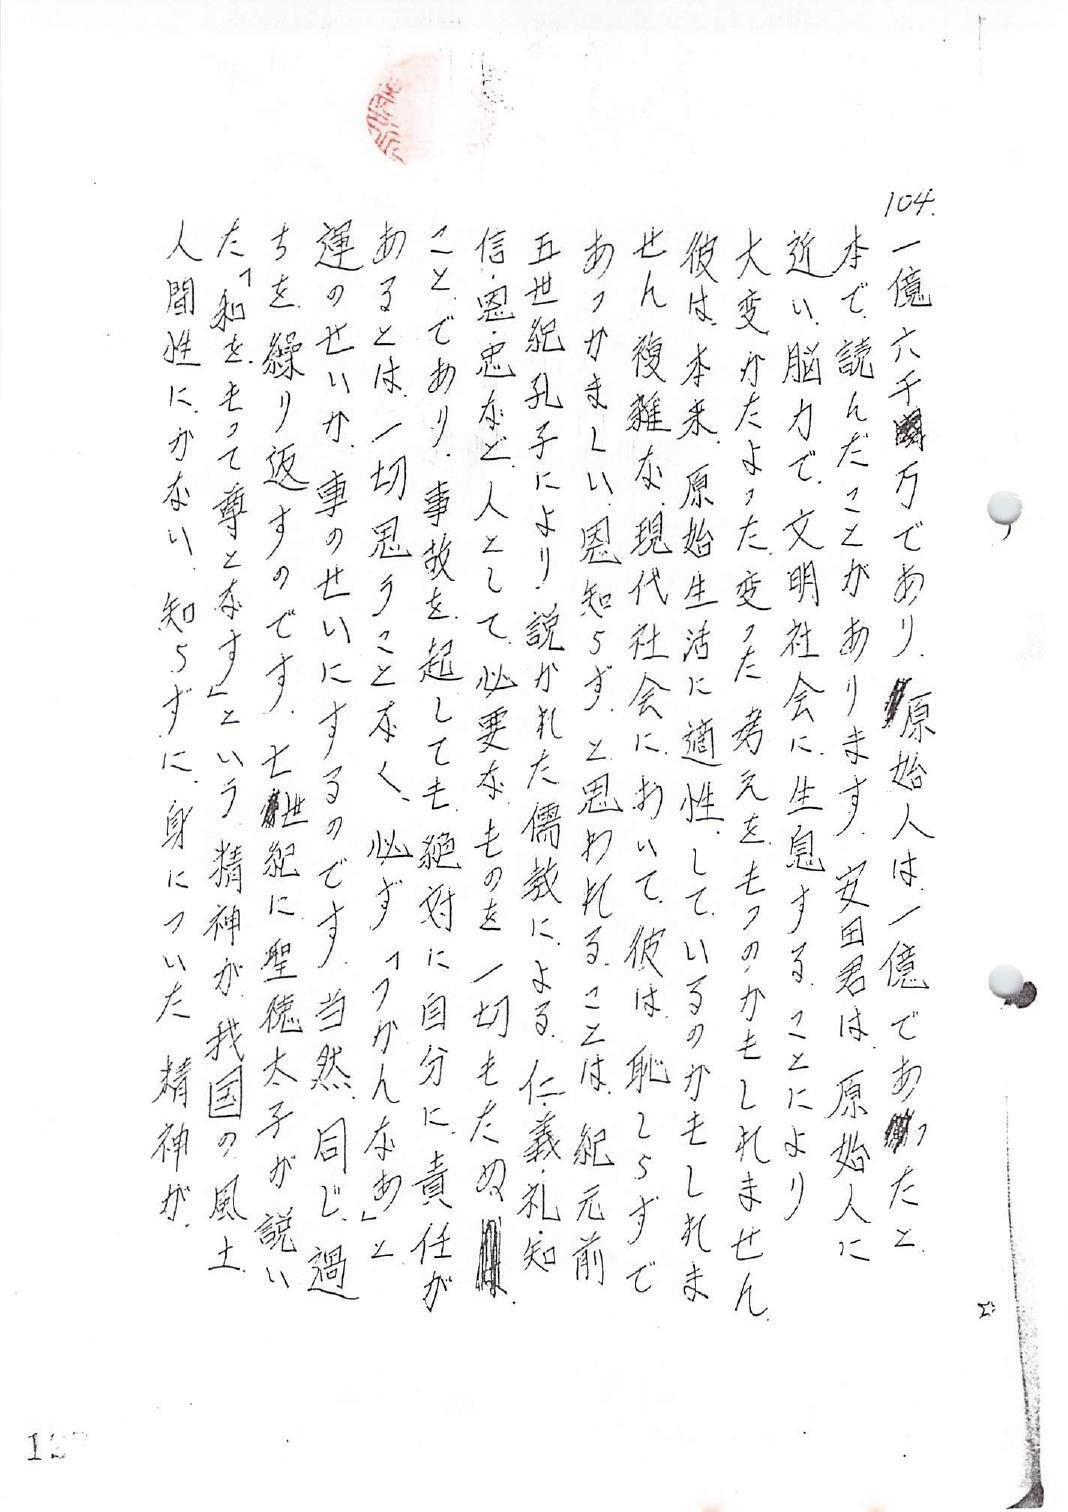 104.
一億六千万であり、原始人は、一億であったと、
本で、読んだことがあります。安田君は、原始人に
近い、脳力で、文明社会に、生息する、ことにより
大変かたよった、変った考えをもつのかもしれません。
彼は、本来、原始生活に適性、して、いるのかもしれま
せん、複雑な、現代社会に、おいて、彼は、恥しらずで
あつかましい、恩知らず、と思われる、ことは、紀元前
五世紀孔子により、説かれた儒教に、よる、仁・義・礼・知
信・恩・忠など、人として、必要な、ものを一切もたぬ、
こと、であり、事故を起しても、絶対に自分に、責任が
あるとは、一切思うことなく、必ず「つかんなあ」と
運のせいか、車のせいにするのです。当然、同じ、過
ちを、繰り返すのです。七世紀に、聖徳太子が説い
た、「和を、もって尊となす」という精神が、我国の風土
人間性に、かない、知らずに、身についた精神が、